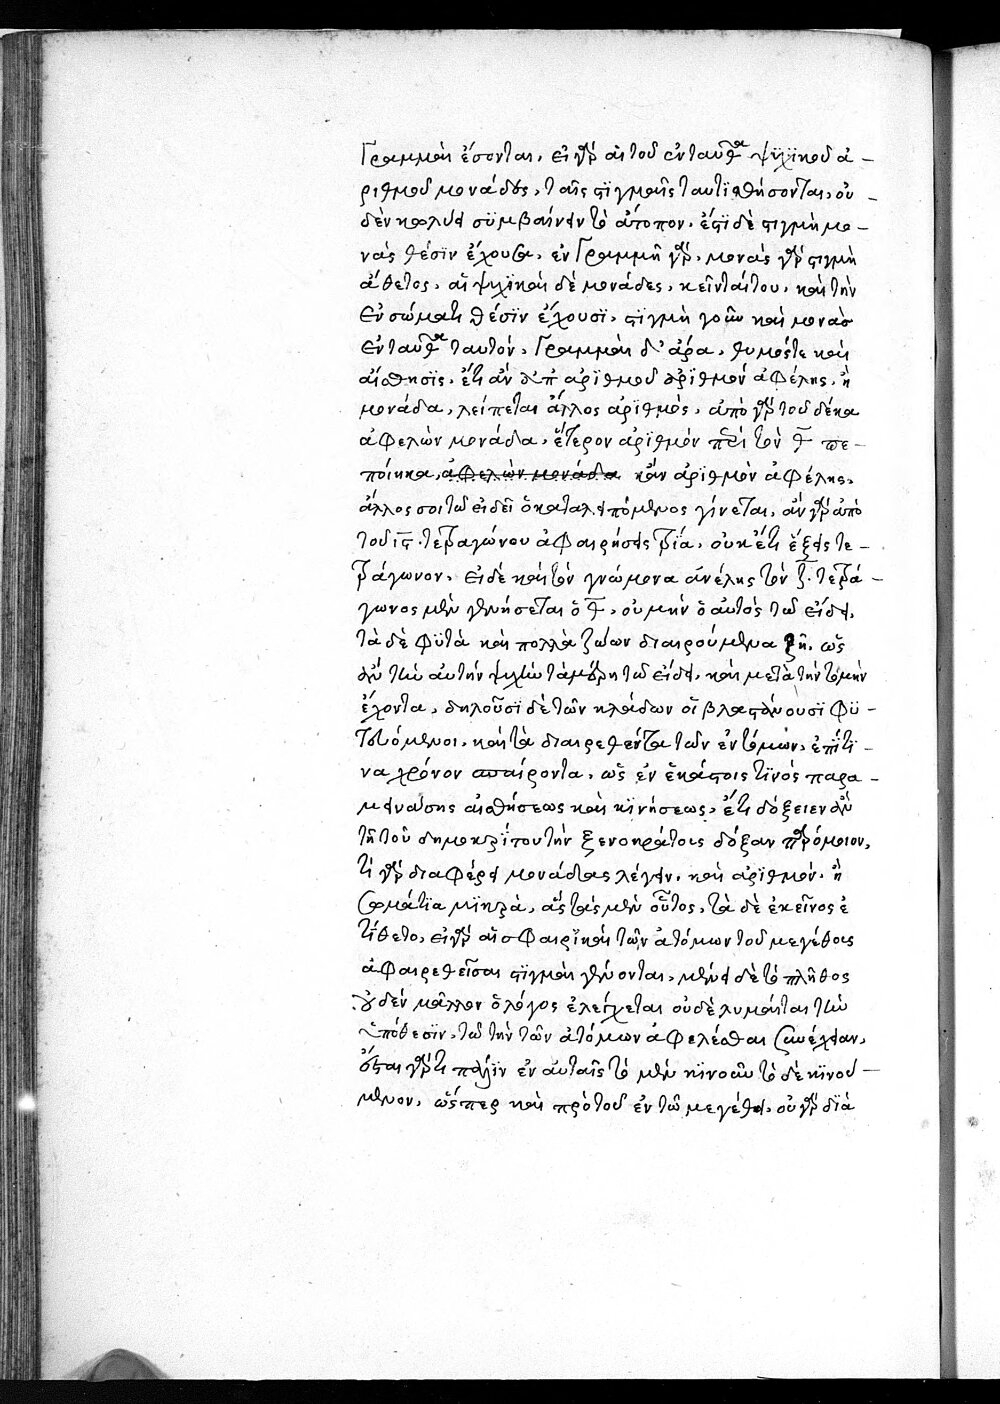 Γραμμαὶ ἔσονται. εἰ γὰρ αἱ τοῦ ἐνταῦθα ψυχικοῦ ἀ-
ριθμοῦ μονάδες, ταῖς στιγμαῖς ταυτισθήσονται, οὐ-
δὲν κωλύει συμβαίνειν τὸ ἄτοπον. ἔστι δὲ στιγμὴ μο-
νὰς θέσιν ἔχουσα, ἐν Γραμμῇ γὰρ. μονὰς γὰρ στιγμὴ
ἄθετος. αἱ ψυχικαὶ δὲ μονάδες, κεῖνταί του. καὶ τὴν
ἐν σώματι θέσιν ἔχουσι. στιγμὴ γοῦν καὶ μονὰς
ἐνταῦθα ταυτόν. Γραμμαὶ δ' ἄρα, θυμός τε καὶ
αἴσθησις. ἔτι ἂν ἀπ' ἀριθμοῦ ἀριθμὸν ἀφέλῃς, ἢ
μονάδα, λείπεται ἄλλος ἀριθμός. ἀπὸ γὰρ τοῦ δέκα
ἀφελὼν μονάδα, ἕτερον ἀριθμὸν παρὰ τὸν θ πε-
ποίηκα, ἀφελὼν μονάδα κἂν ἀριθμὸν ἀφέλῃς,
ἄλλος σοι τῷ εἴδει ὁ καταλειπόμενος γίνεται. ἂν γὰρ ἀπὸ
τοῦ ιϛ τετραγώνου ἀφαιρήσεις τρία, οὐκ ἔτι ἕξεις τε-
τράγωνον. εἰ δὲ καὶ τὸν γνώμονα ἀνέλῃς τὸν ζ. τετρά-
γωνος μὲν γενήσεται ὁ θ, οὐ μὴν ὁ αὐτὸς τῷ εἴδει.
τὰ δὲ φυτὰ καὶ πολλὰ ζώων διαιρούμενα ζῇ, ὡς
ἂν τὴν αὐτὴν ψυχὴν τὰ μέρη τῷ εἴδει. καὶ μετὰ τὴν τομὴν
ἔχοντα. δηλοῦσι δὲ τῶν κλάδων οἱ βλαστάνουσι φυ-
τευόμενοι. καὶ τὰ διαιρεθέντα τῶν ἐντόμων. ἐπί τι-
να χρόνον σπαίροντα. ὡς ἐν ἑκάστοις τινὸς παρα-
μεινάσης αἰσθήσεως καὶ κινήσεως. ἔτι δόξειεν ἂν
τῇ τοῦ δημοκρίτου τὴν ξενοκράτους δόξαν παρόμοιον.
τί γὰρ διαφέρει μονάδας λέγειν. καὶ ἀριθμόν. ἢ
σωμάτια μικρὰ. ἃς τὰς μὲν οὗτος, τὰ δὲ ἐκεῖνος ἐ
τίθετο. εἰ γὰρ αἱ σφαιρικαὶ τῶν ἀτόμων τοῦ μεγέθους
ἀφαιρεθεῖσαι στιγμαὶ γένονται. μένει δὲ τὸ πλῆθος
οὐδὲν μᾶλλον ὁ λόγος ἐλέγχεται οὐδὲ λυμαίνεται τὴν
ὑπόθεσιν. τῷ τὴν τῶν ἀτόμων ἀφελέσθαι συνέχειαν.
ἔσται γάρ τι πάλιν ἐν αὐταῖς τὸ μὲν κινοῦν τὸ δὲ κινού-
μενον. ὥσπερ καὶ πρὸ τοῦ ἐν τῷ μεγέθει. οὐ γὰρ διὰ